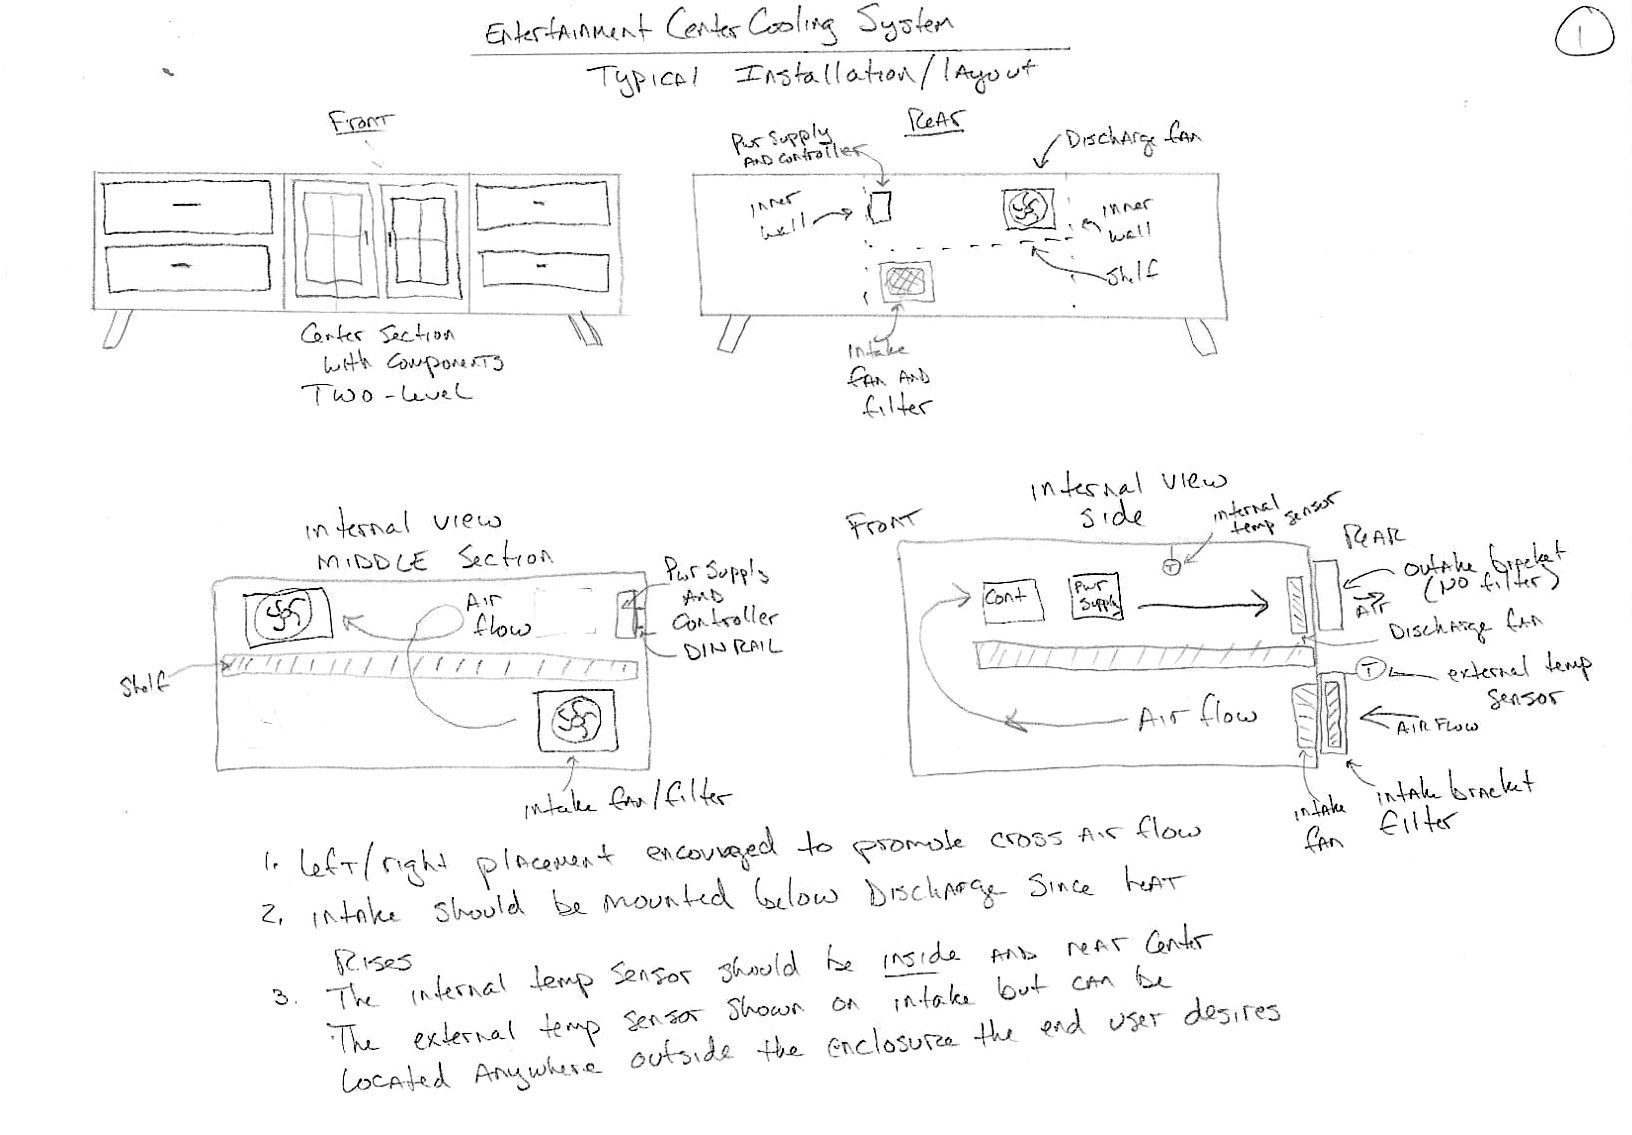 Entertainment Center Cooling System
1
Typical Installation/layout
Front
Center Section
with components
Two-level
Rear
Pwr Supply
and controller
Discharge fan
inner
wall
inner
wall
shelf
intake
fan and
filter
internal view
MIDDLE Section
Air
flow
Pwr Supply
and
Controller
DIN RAIL
Shelf
intake fan/filter
internal view
side
Front
internal
temp sensor
Rear
Outake bracket
(NO filter)
Air
Cont
Pwr
Supply
Discharge fan
T
T
external temp
sensor
Air flow
Air flow
intake
fan
intake bracket
filter
1. left/right placement encouraged to promote cross Air flow
2. intake should be mounted below Discharge since heat
Rises
3. The internal temp sensor should be inside and near center
The external temp sensor shown on intake but can be
located Anywhere outside the enclosure the end user desires